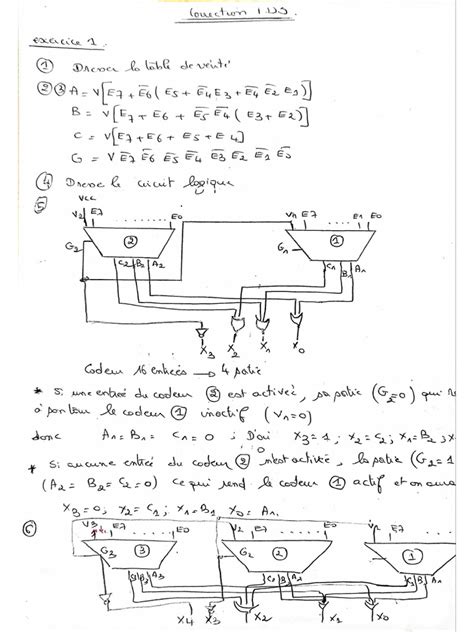 Correction 1.DS
exercice 1
① Dresser la table de verité
②③ A = V[E7 + E̅6̅ ( E5 + E̅4̅ E3 + E̅4̅ E̅2̅ E1)]
B = V[E7 + E6 + E̅5̅ E̅4̅ (E3 + E2)]
C = V[E7 + E6 + E5 + E4]
G = V E̅7̅ E̅6̅ E̅5̅ E̅4̅ E̅3̅ E̅2̅ E̅1̅ E̅0̅
④ Dresse le circuit logique
⑤ Vcc
V2 E7 ...... E0 V1 E7 ...... E1 E0
G2 ② G1 ①
C2 B2 A2 C1 B1 A1
X3 X2 X1 X0
Codeur 16 entrées → 4 sortie
* Si une entrée du codeur ② est activée, sa sortie (G2=0) qui
le codeur ① inactif (V1=0)
donc A1 = B1 = C1 = 0 ; D'où X3=1 ; X2=C2 ; X1=B2 ;
* Si aucune entrée du codeur ② n'est activée, la sortie (G2=1
(A2 = B2 = C2 = 0) ce qui rend le codeur ① actif et on aura
X3=0 ; X2=C1 ; X1=B1 X0=A1.
⑥ V3 E7 ...... E0 V2 E7 ...... E0 V1 E7 ...... E0
G3 ③ G2 ② ①
C3 B3 A3 C2 B2 A2 C1 B1 A1
X4 X3 X2 X1 X0